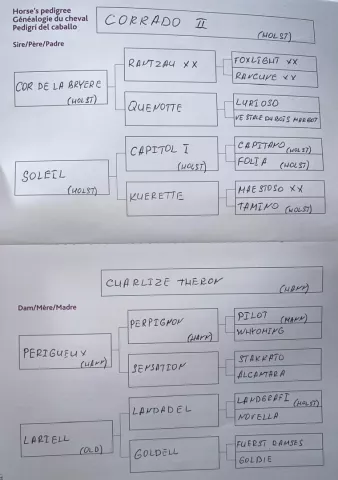 Horse's pedigree
Généalogie du cheval
Pedigrí del caballo
CORRADO II
(HOLST)
Sire/Père/Padre
COR DE LA BRYERE
(HOLST)
RANTZAU XX
FOXLIGHT XX
RANCUNE XX
QUENOTTE
LURIOSO
VESTALE DU BOIS MARGOT
SOLEIL
(HOLST)
CAPITOL I
(HOLST)
CAPITANO (HOLST)
FOLIA (HOLST)
KUERETTE
MAESTOSO XX
TAMINO (HOLST)
CHARLIZE THERON
(HANN)
Dam/Mère/Madre
PERIGUEUX
(HANN)
PERPIGNON
(HANN)
PILOT (HANN)
WHYOMING
SENSATION
STAKKATO
ALCANTARA
LARIELL
(OLD)
LANDADEL
LANDGRAF I (HOLST)
NOVELLA
GOLDELL
FUERST DAMSES
GOLDIE